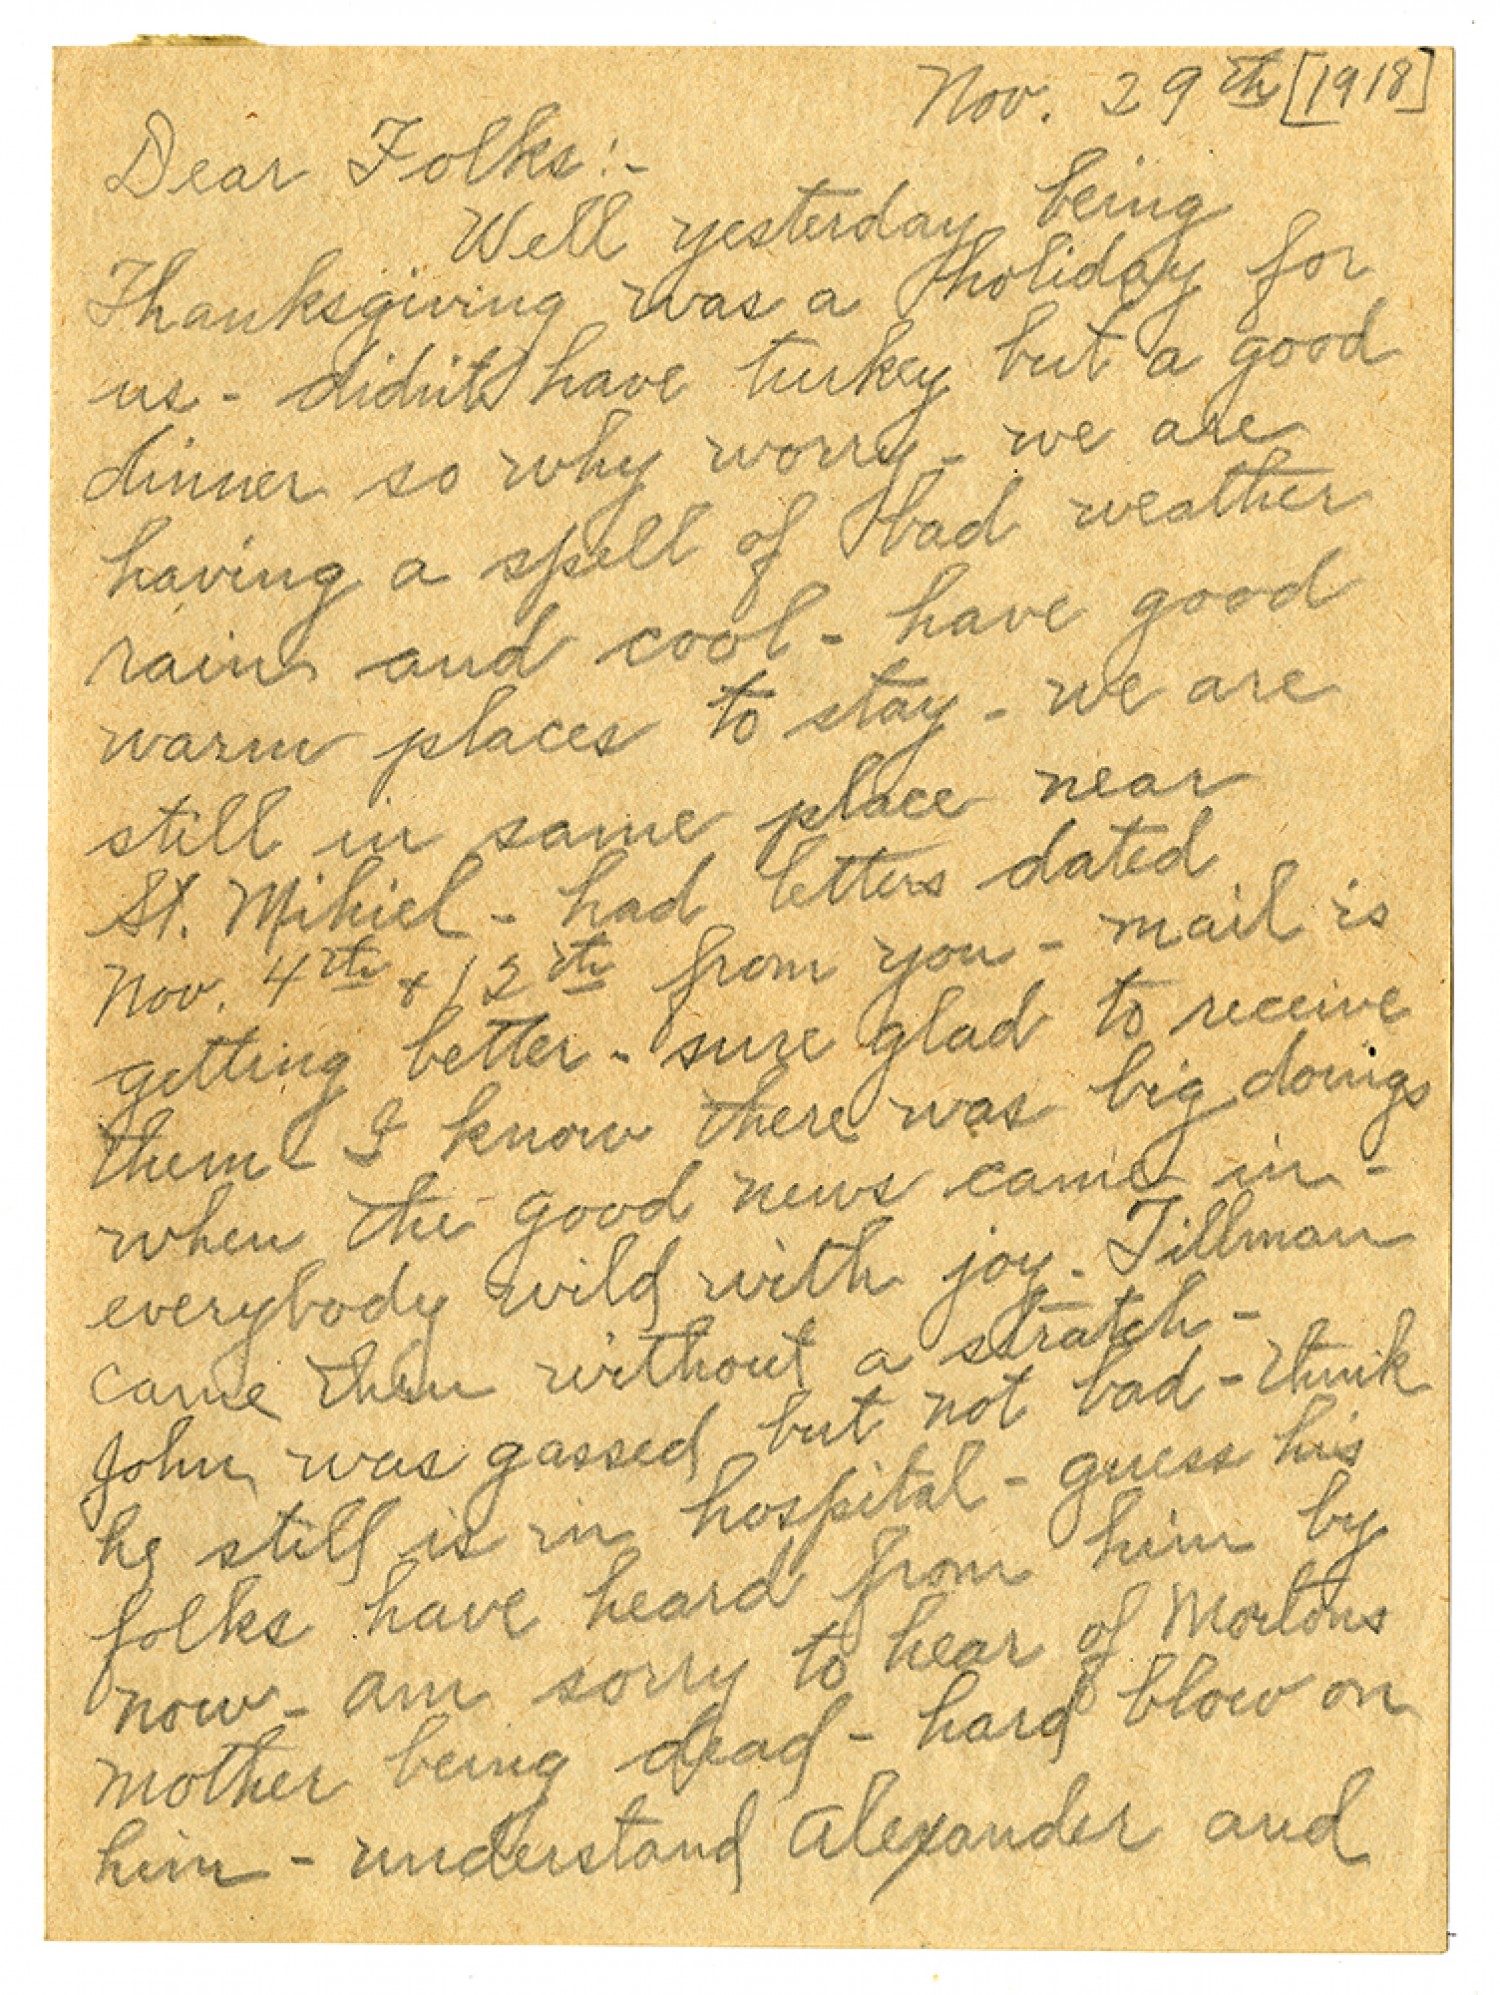 Nov. 29th [1918]
Dear Folks:-
Well yesterday being
Thanksgiving was a holiday for
us - didn't have turkey but a good
dinner so why worry - we are
having a spell of bad weather
rain and cool - have good
warm places to stay - we are
still in same place near
St. Mihiel - had letters dated
Nov. 4th + 12th from you - mail is
getting better - sure glad to receive
them - I know there was big doings
when the good news came in -
everybody wild with joy. Tillman
came thru without a stratch -
John was gassed but not bad - think
he still is in hospital - guess his
folks have heard from him by
now - am sorry to hear of Mortons
mother being dead - hard blow on
him - understand Alexander and